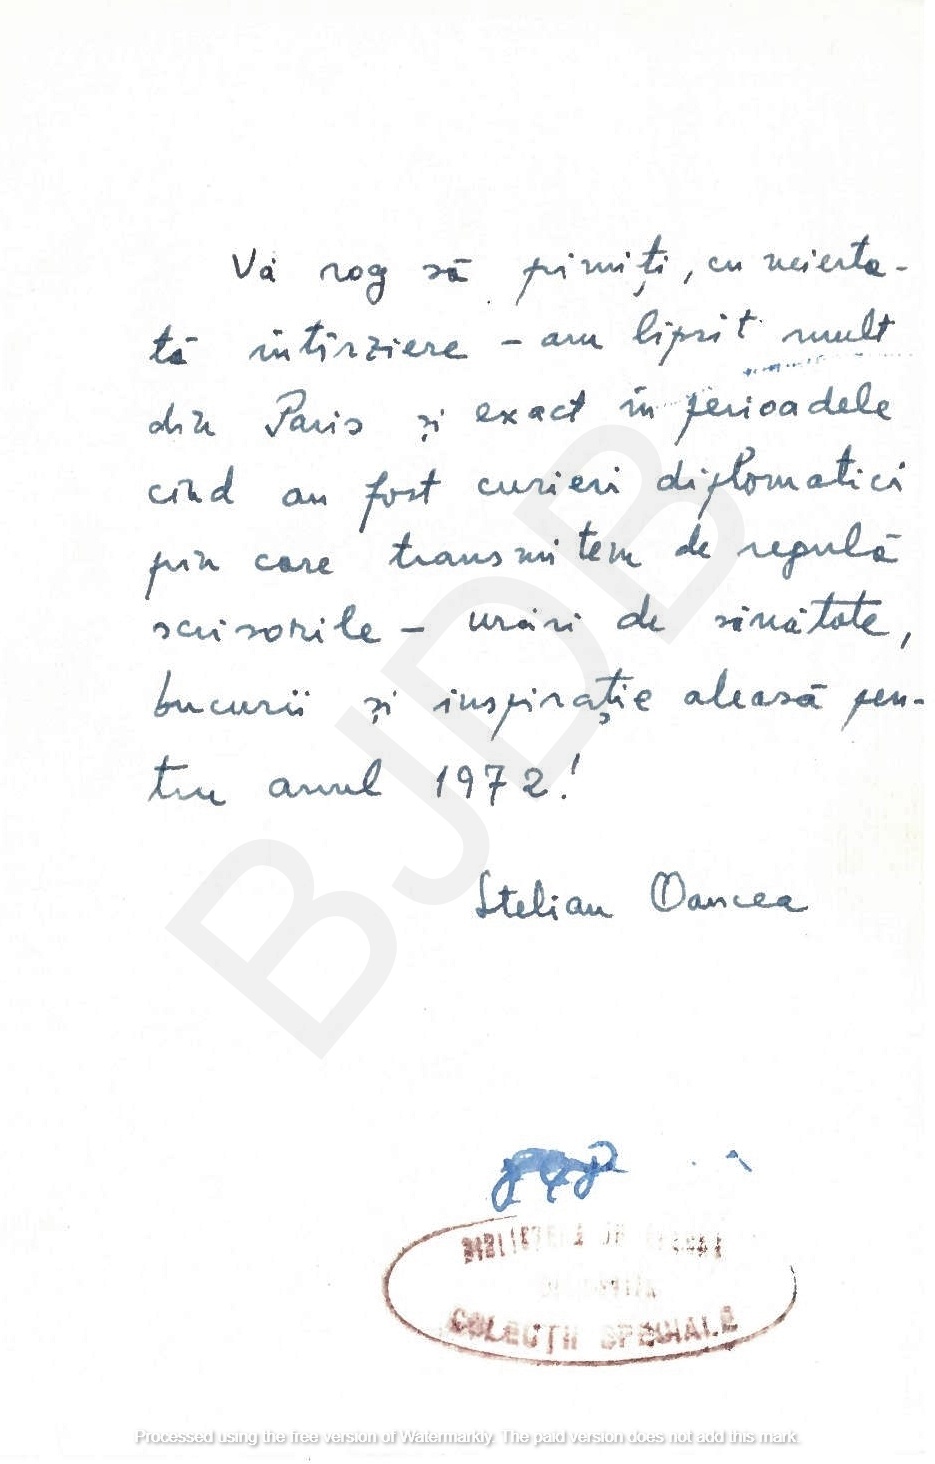 Vă rog să primiți, cu neierta-
tă întîrziere – am lipsit mult
din Paris și exact în perioadele
cînd au fost curieri diplomatici
prin care transmitem de regulă
scrisorile – urări de sănătate,
bucurii și inspirație aleasă pen-
tru anul 1972!
Stelian Oancea
BJDB
COLECȚII SPECIALE
Processed using the free version of Watermarkly. The paid version does not add this mark.